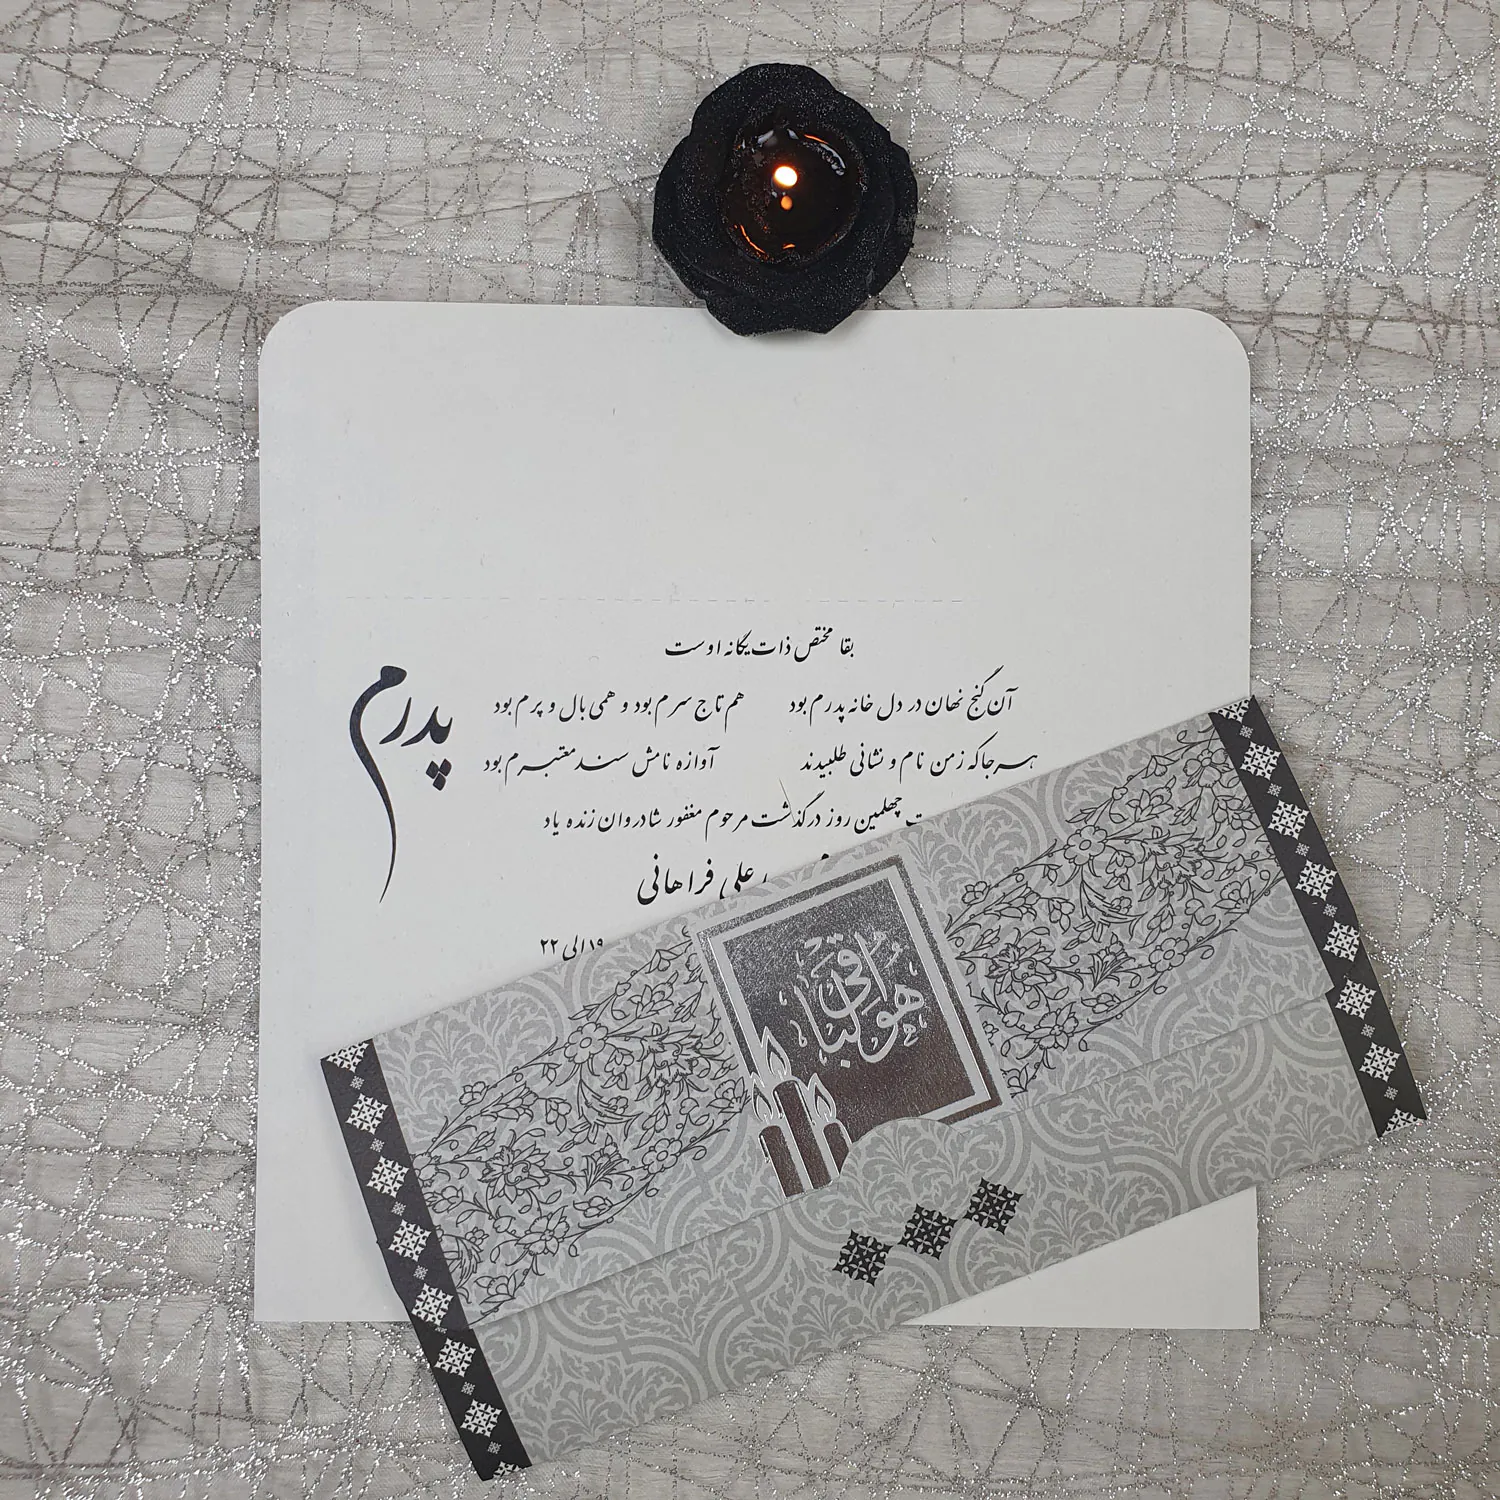 بقا مختص ذات یگانه اوست
پدرم
آن گنج نهان در دل خانه پدرم بود هم تاج سرم بود و همی بال و پرم بود
هرجا که ز من نام و نشانی طلبیدند آوازه نامش سند معتبرم بود
چهلمین روز درگذشت مرحوم مغفور شادروان زنده یاد
علی فراهانی
۱۹ الی ۲۲
هوالباقی